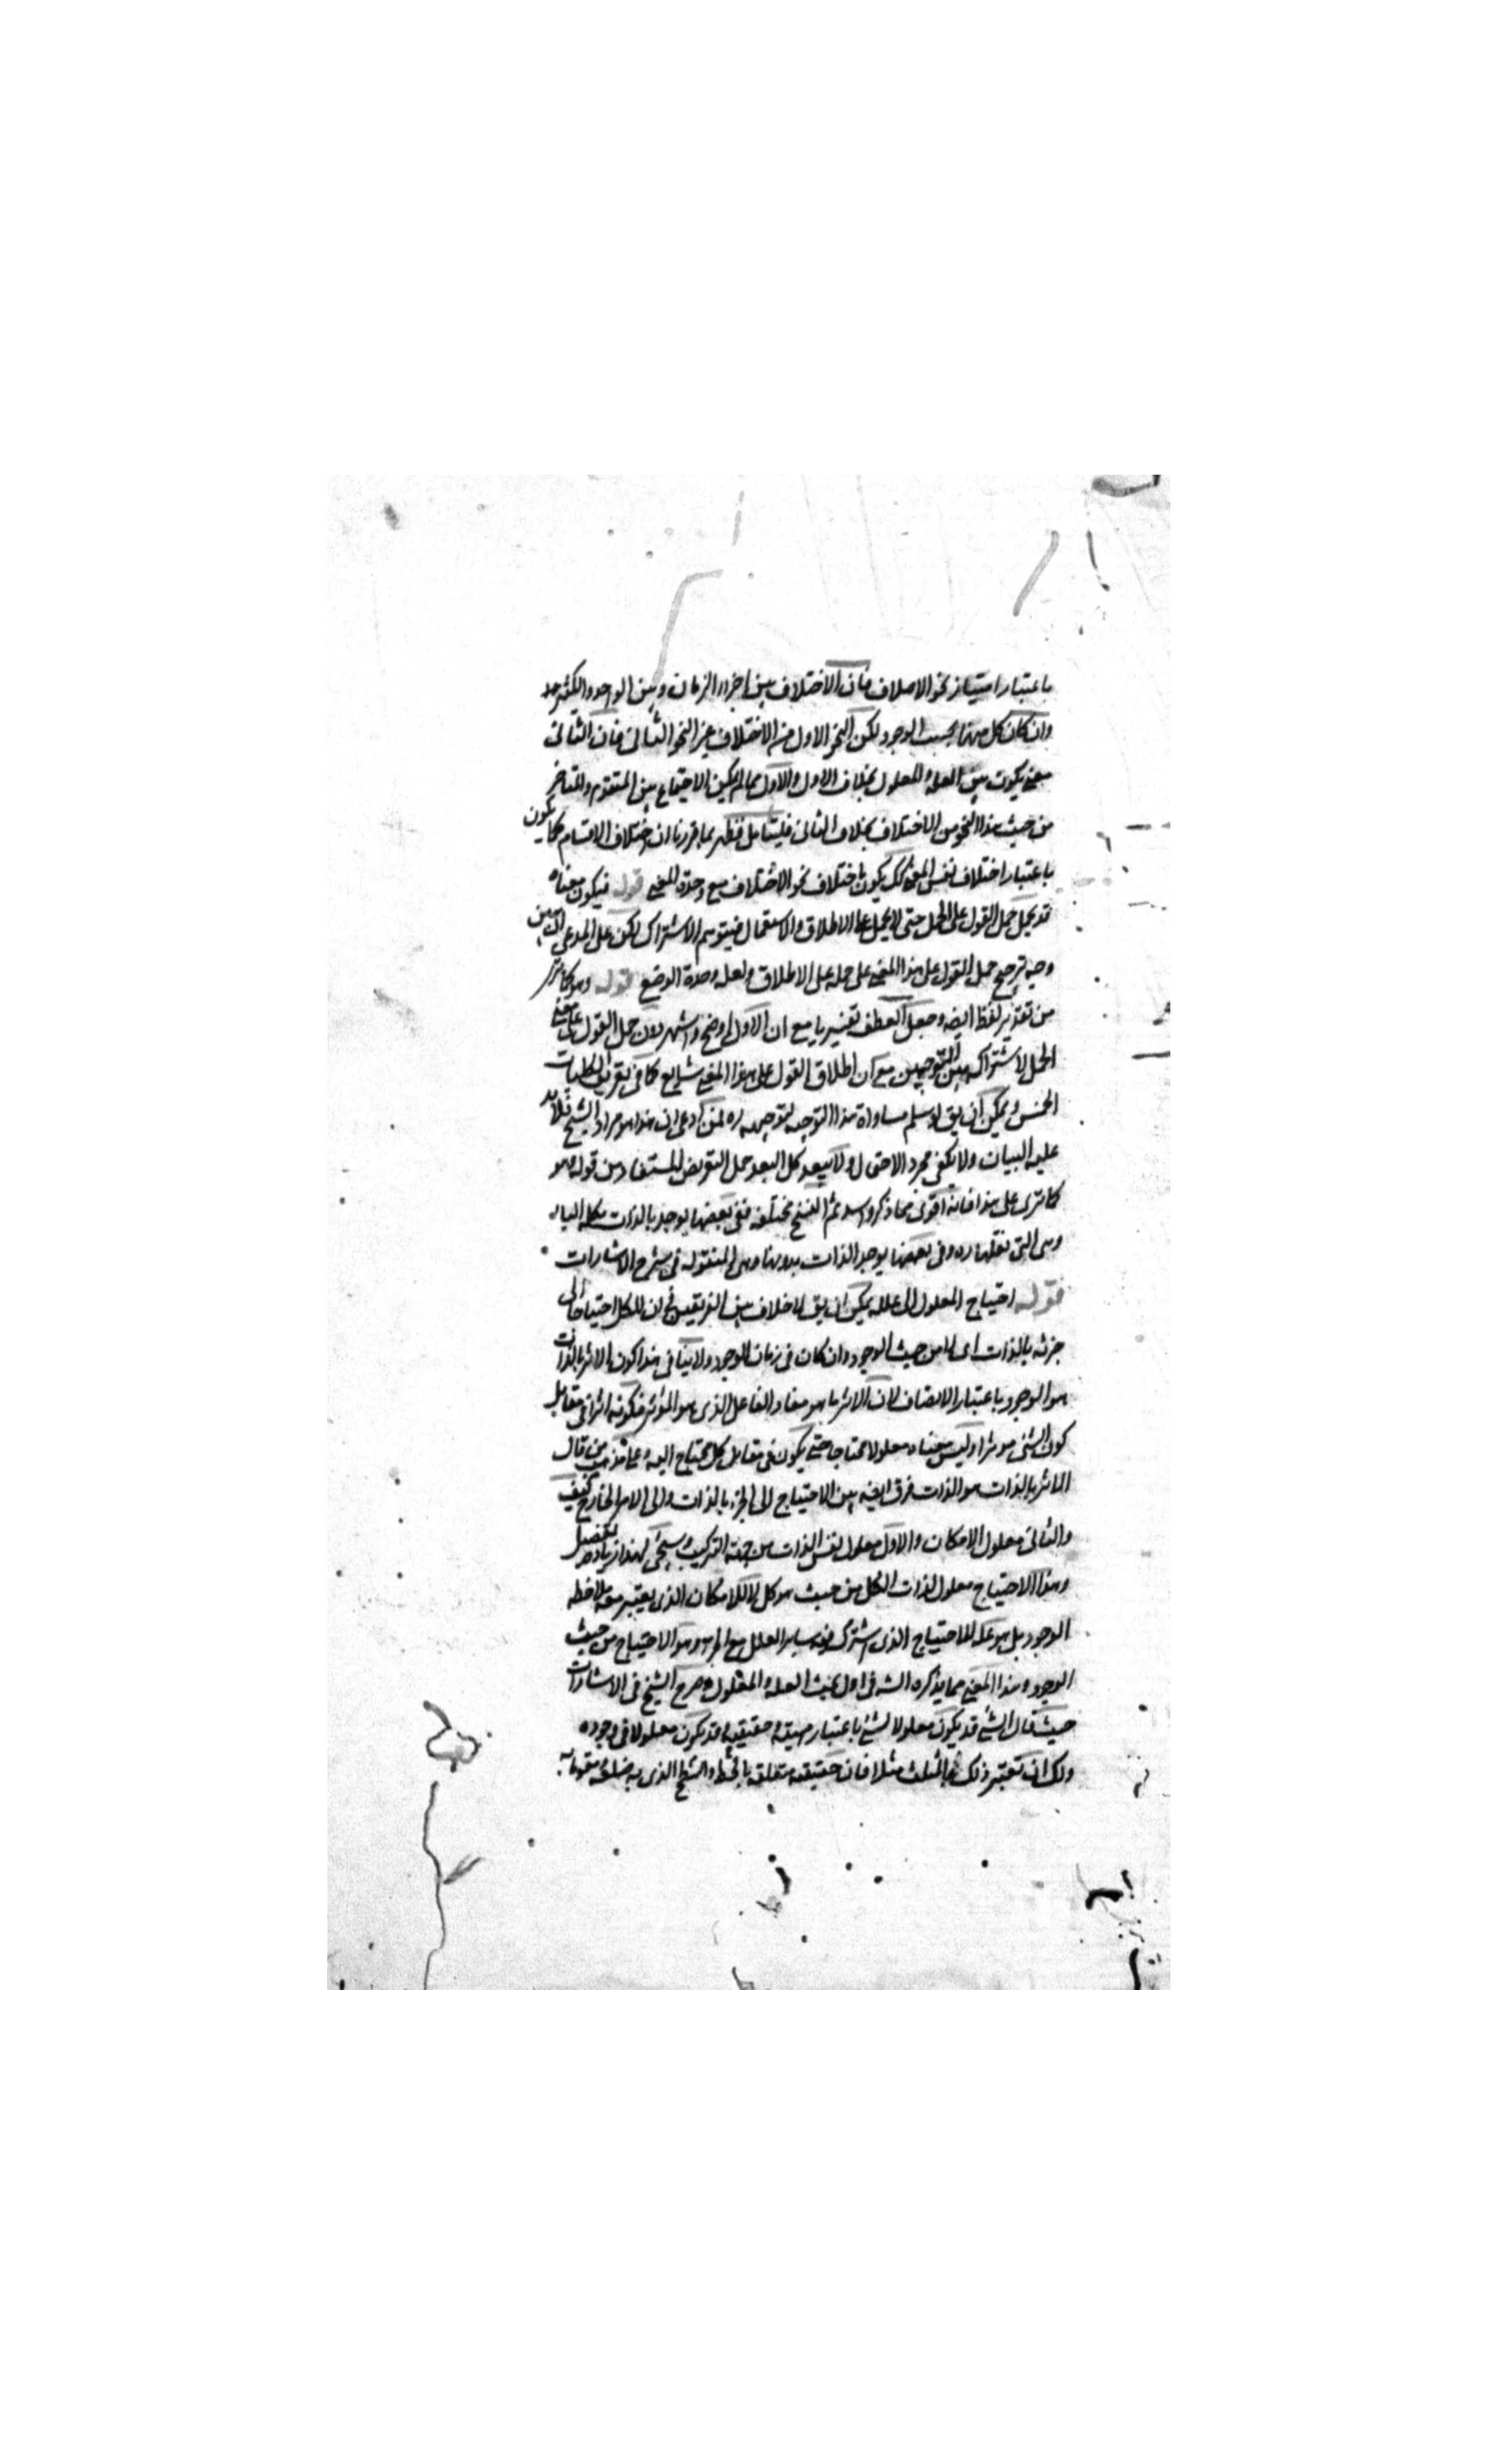 باعتبار امتياز نحو الاختلاف فان الاختلاف بين اجزاء الزمان وبين الواحد والكثير
وان كان كل منهما بحسب الوجود لكن النحو الاول من الاختلاف غير النحو الثانى فان الثانى
يكون بين العله والمعلول بخلاف الاول والاول مما لم يكن الاجتماع بين المتقدم والمتاخر
من حيث هذا النحو من الاختلاف بخلاف الثانى فليتامل فظهر بما قررنا ان اختلاف الاقسام كما يكون
باعتبار اختلاف نفس المعنى كك يكون باختلاف نحو الاختلاف مع وحدة المعنى قوله فيكون معناه
قد يحمل القول على الحمل حتى لا يحمل على الاطلاق والاستعمال فيتوهم الاشتراك لكن على المدعى ان يبين
وجه ترجيح حمل القول على هذا المعنى على حمله على الاطلاق ولعله وحدة الوضع قوله وهو كما ترى
من تقدير لفظ ايضه وجعل العطف تفسيريا مع ان الاول اوضح واشهر دون حمل القول على معنى
الحمل لاشتراكه بين التوجيهين مع ان اطلاق القول على هذا المعنى شايع كما فى تعريف الكليات
الخمس ويمكن ان يق لو سلم مساواة هذا التوجيه لتوجيهه ره لمن ادعى ان هذا هو مراد الشيخ فلابد
عليه البيان ولا يكفى مجرد الاحتمال ولا يبعد كل البعد حمل التعريض المستفاد من قوله وهو
كما ترى على هذا فانه اقوى مما ذكروا ثم النسخ مختلفه ففى بعضها يوجد بالذات
وهى التى نقلها ره وفى بعضها يوجد الذات بدونها وهى المنقوله فى شرح الاشارات
قوله احتياج المعلول الى علله يمكن ان يق لا خلاف بين الفريقين فى ان للكل احتياجا الى
جزئه بالذات اى لا من حيث الوجود وان كان فى زمان الوجود ولا ينافى هذا كون الاثر بالذات
هو الوجود باعتبار الاتصاف لان الاثر ما هو مفاد الفاعل الذى هو المؤثر فكونه اثرا فى مقابل
كون الشئ موثرا وليس معناه معلولا محتاجا حتى يكون فى مقابل كل محتاج اليه وعلى مذهب من قال
الاثر بالذات هو الذات فرق ايضه بين الاحتياج الى الجزء بالذات والى الامر الخارج كيف
والثانى معلول الامكان والاول معلول نفس الذات من جهة التركيب وسيجئ لهذا زياده تفصيل
وهذا الاحتياج معلول لذات الكل من حيث هو كل لا للامكان الذى يعتبر معه ملاحظه
الوجود بل هو عله للاحتياج الذى اشترك فيه ساير العلل مع الجزء وهو الاحتياج من حيث
الوجود وهذا المعنى مما يذكره الشه فى اول بحث العله والمعلول وصرح الشيخ فى الاشارات
حيث قال الشئ قد يكون معلولا لشئ باعتبار مهيته وحقيقته وقد يكون معلولا فى وجوده
ولك ان تعتبر ذلك بالمثلث مثلا فان حقيقته متعلقه بالخط والسطح الذى